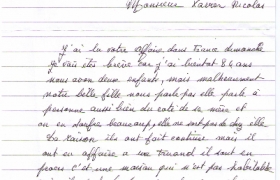 Monsieur Xavier Nicolas
J'ai lu votre affaire dans France dimanche
je vais être brève car j'ai bientôt 84 ans
nous avons deux enfants, mais malheureusement
notre belle fille nous parle pas elle parle à
personne aussi bien du coté de sa mère et
on en souffre beaucoup, elle ne répond de chez elle
la maison ils ont fait construire mais il
ont en affaire a un truand il sont en
procès c'est une maison qui n'est pas habitable